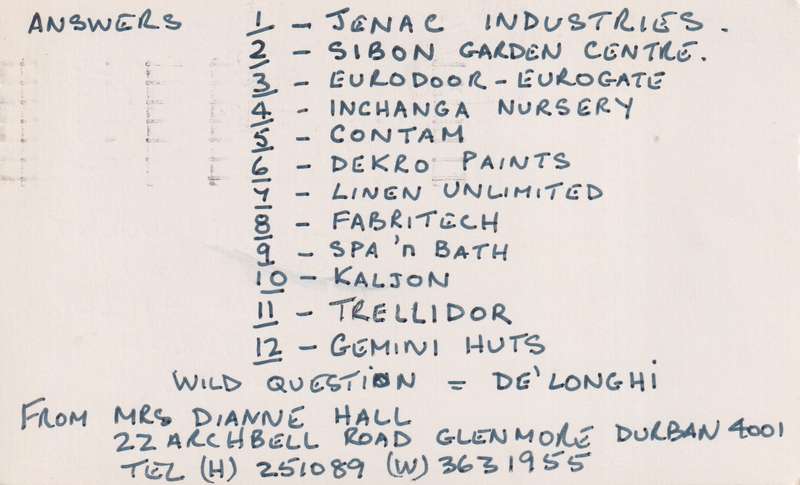 ANSWERS 1 - JENAC INDUSTRIES.
2 - SIBON GARDEN CENTRE.
3 - EURODOOR - EUROGATE
4 - INCHANGA NURSERY
5 - CONTAM
6 - DEKRO PAINTS
7 - LINEN UNLIMITED
8 - FABRITECH
9 - SPA 'n BATH
10 - KALJON
11 - TRELLIDOR
12 - GEMINI HUTS
WILD QUESTION = DE'LONGHi
FROM MRS DIANNE HALL
22 ARCHBELL ROAD GLENMORE DURBAN 4001
TEL (H) 251089 (W) 3631955